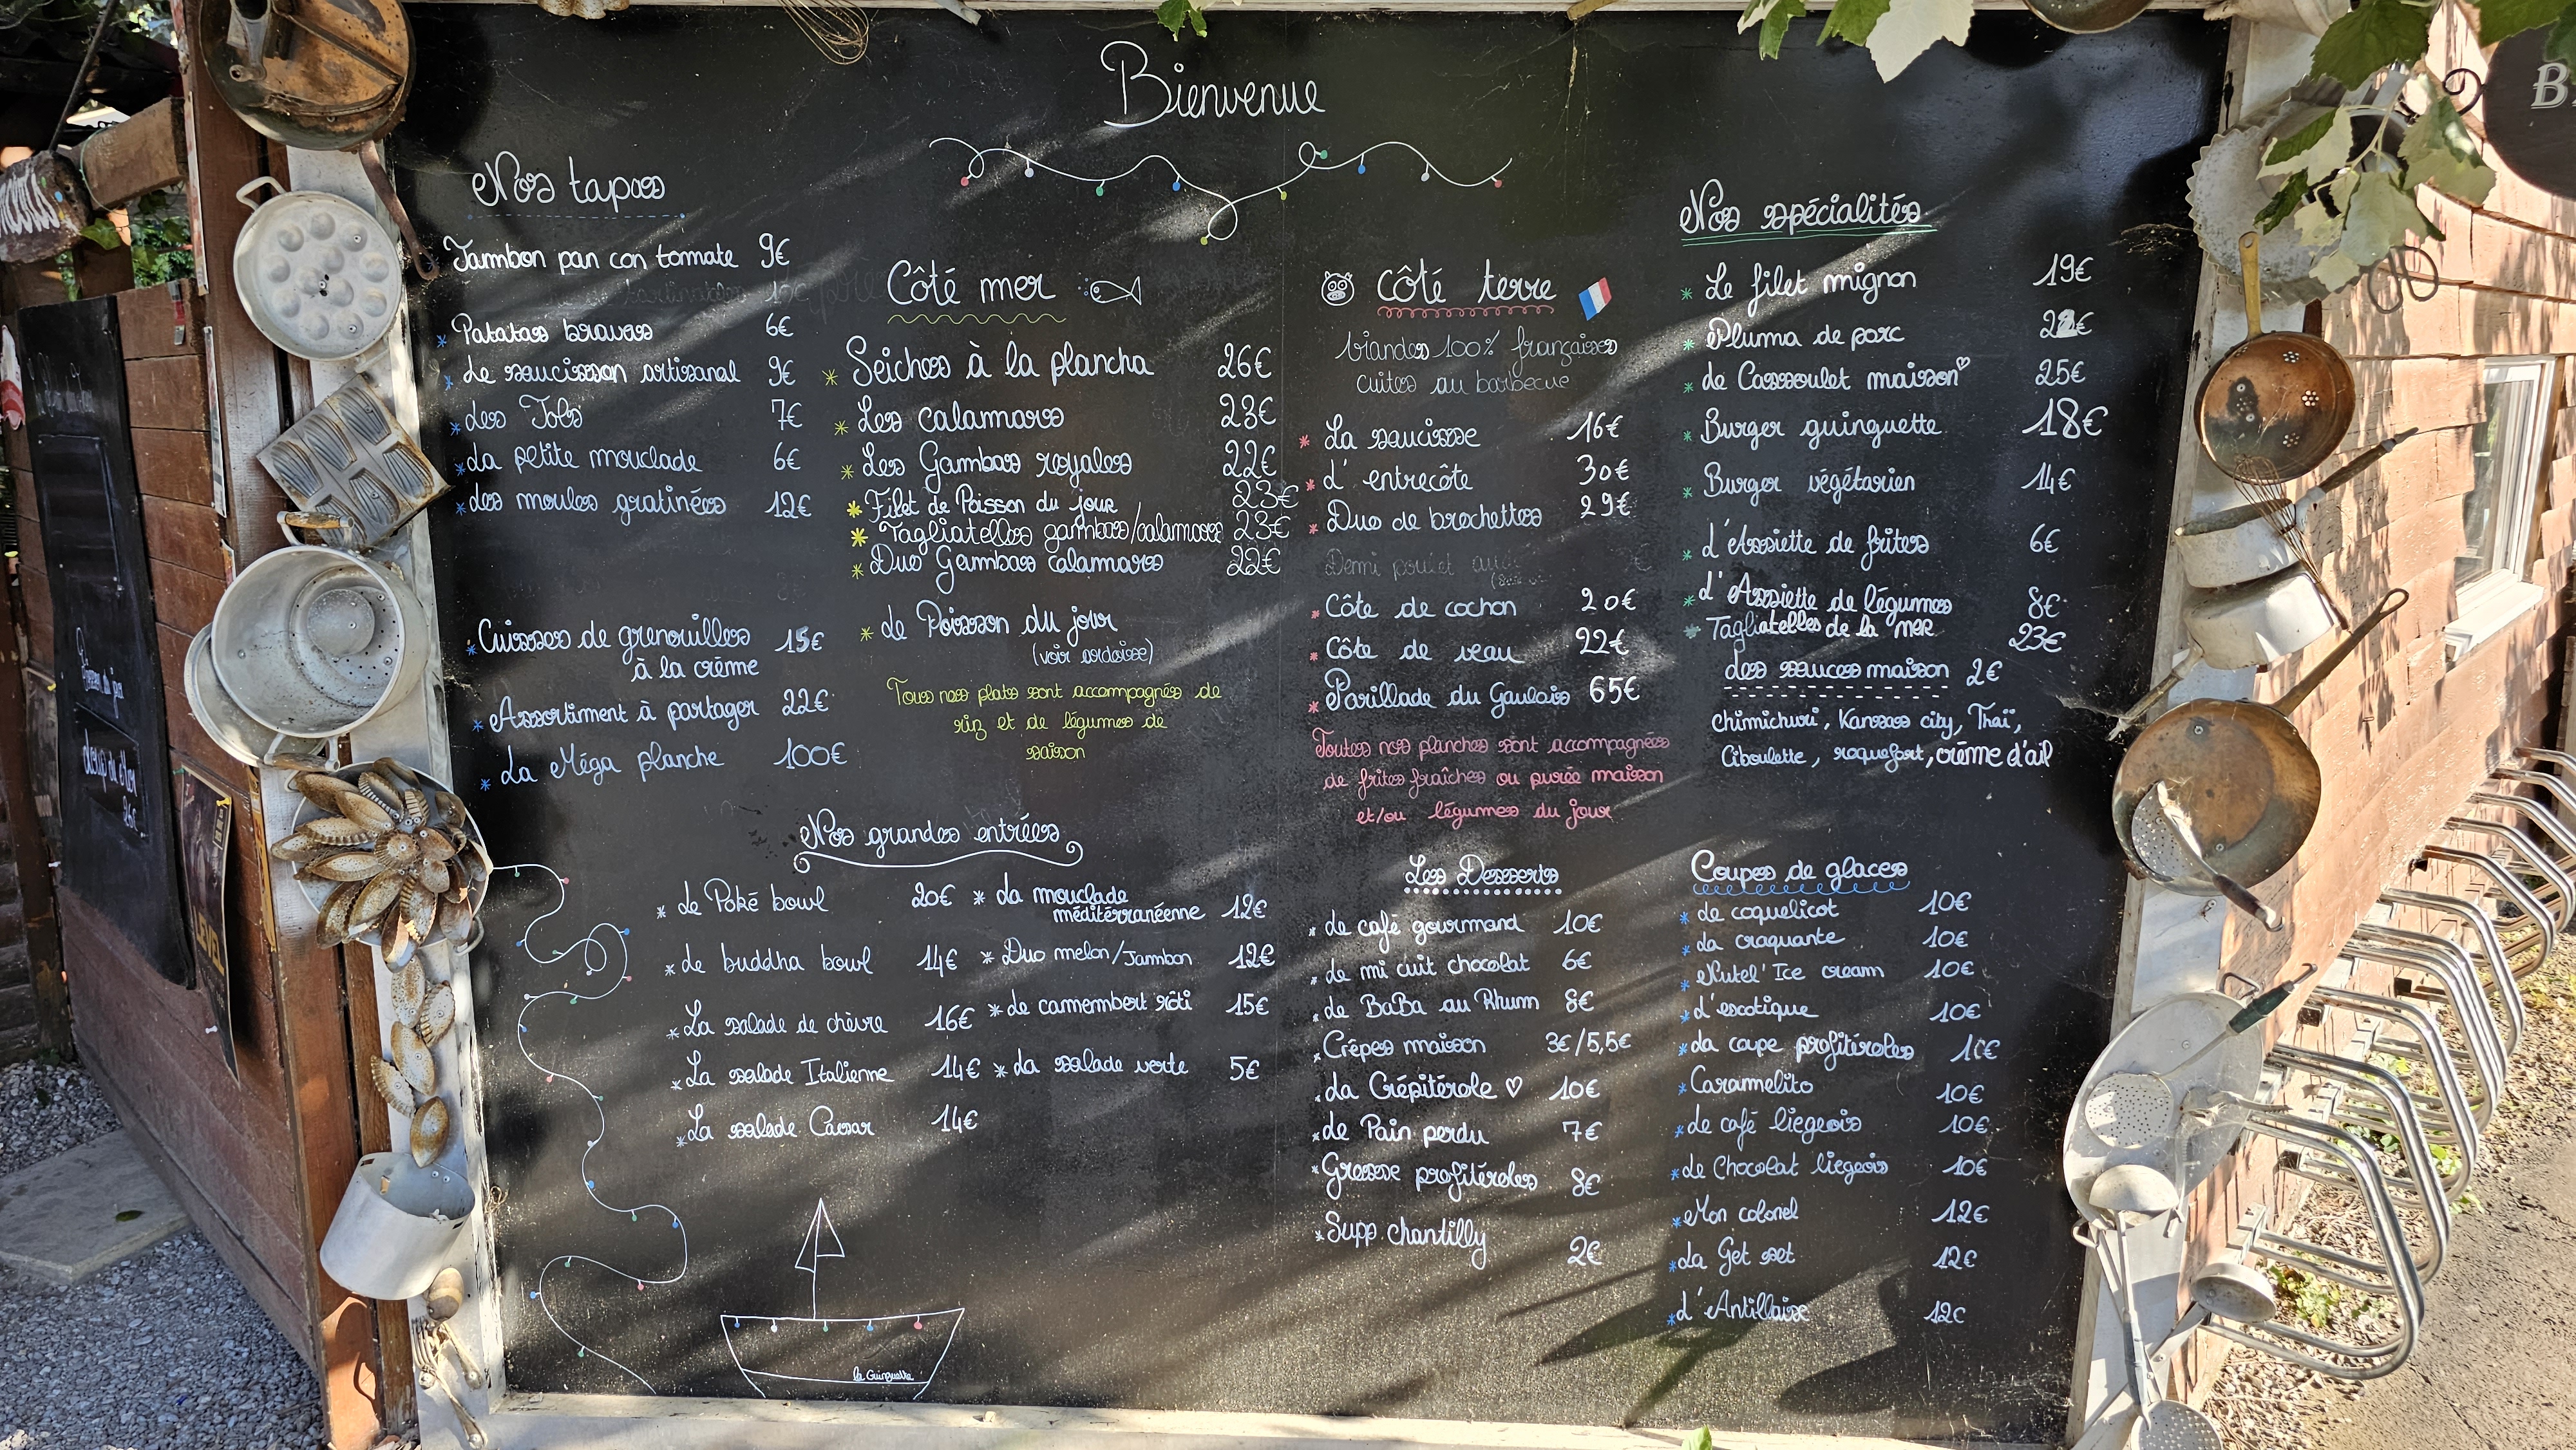 Bienvenue
Nos tapas
Jambon pan con tomate 9€
* Patatas bravas 6€
* Le saucisson artisanal 9€
* Les Tobs 7€
* La petite mouclade 6€
* Les moules gratinées 12€
* Cuisses de grenouilles 15€
à la crème
* Assortiment à partager 22€
* La Méga planche 100€
Côté mer
* Seiches à la plancha 26€
* Les calamars 23€
* Les Gambas royales 22€
* Filet de Poisson du jour 23€
* Tagliatelles gambas/calamars 23€
* Duo Gambas calamars 22€
* Le Poisson du jour
(voir ardoise)
Tous nos plats sont accompagnés de
riz et de légumes de
saison
Côté terre
Viandes 100% françaises
cuites au barbecue
* La saucisse 16€
* L'entrecôte 30€
* Duo de brochettes 29€
Demi poulet
* Côte de cochon 20€
* Côte de veau 22€
* Parillade du Gaulois 65€
Toutes nos planches sont accompagnées
de frites fraîches ou purée maison
et/ou légumes du jour
Nos spécialités
* Le filet mignon 19€
* Pluma de porc
* Le Cassoulet maison 25€
* Burger guinguette 18€
* Burger végétarien 14€
* L'Assiette de frites 6€
* L'Assiette de légumes 8€
* Tagliatelles de la mer 23€
Les sauces maison 2€
Chimichuri, Kansas city, Thaï,
Ciboulette, roquefort, crème d'ail
Nos grandes entrées
* Le Poké bowl 20€ * La mouclade
méditérranéenne 12€
* Le buddha bowl 14€ * Duo melon/Jambon 12€
* La salade de chèvre 16€ * Le camembert rôti 15€
* La salade Italienne 14€ * La salade verte 5€
* La salade Caesar 14€
Les Desserts
* Le café gourmand 10€
* Le mi cuit chocolat 6€
* Le BaBa au Rhum 8€
* Crêpes maison 3€/5,5€
* La Crépitérole ♡ 10€
* Le Pain perdu 7€
* Grosse profitéroles 8€
* Supp chantilly 2€
Coupes de glaces
* Le coquelicot 10€
* La craquante 10€
* Nutel'Ice cream 10€
* L'exotique 10€
* La coupe profitéroles 10€
* Caramelito 10€
* Le café liegeois 10€
* Le Chocolat liegeois 10€
* Mon colonel 12€
* La Get set 12€
* L'Antillaise 12€
La Guinguette
Poisson du jour
Loup de Mer
26€
LEVEL
B